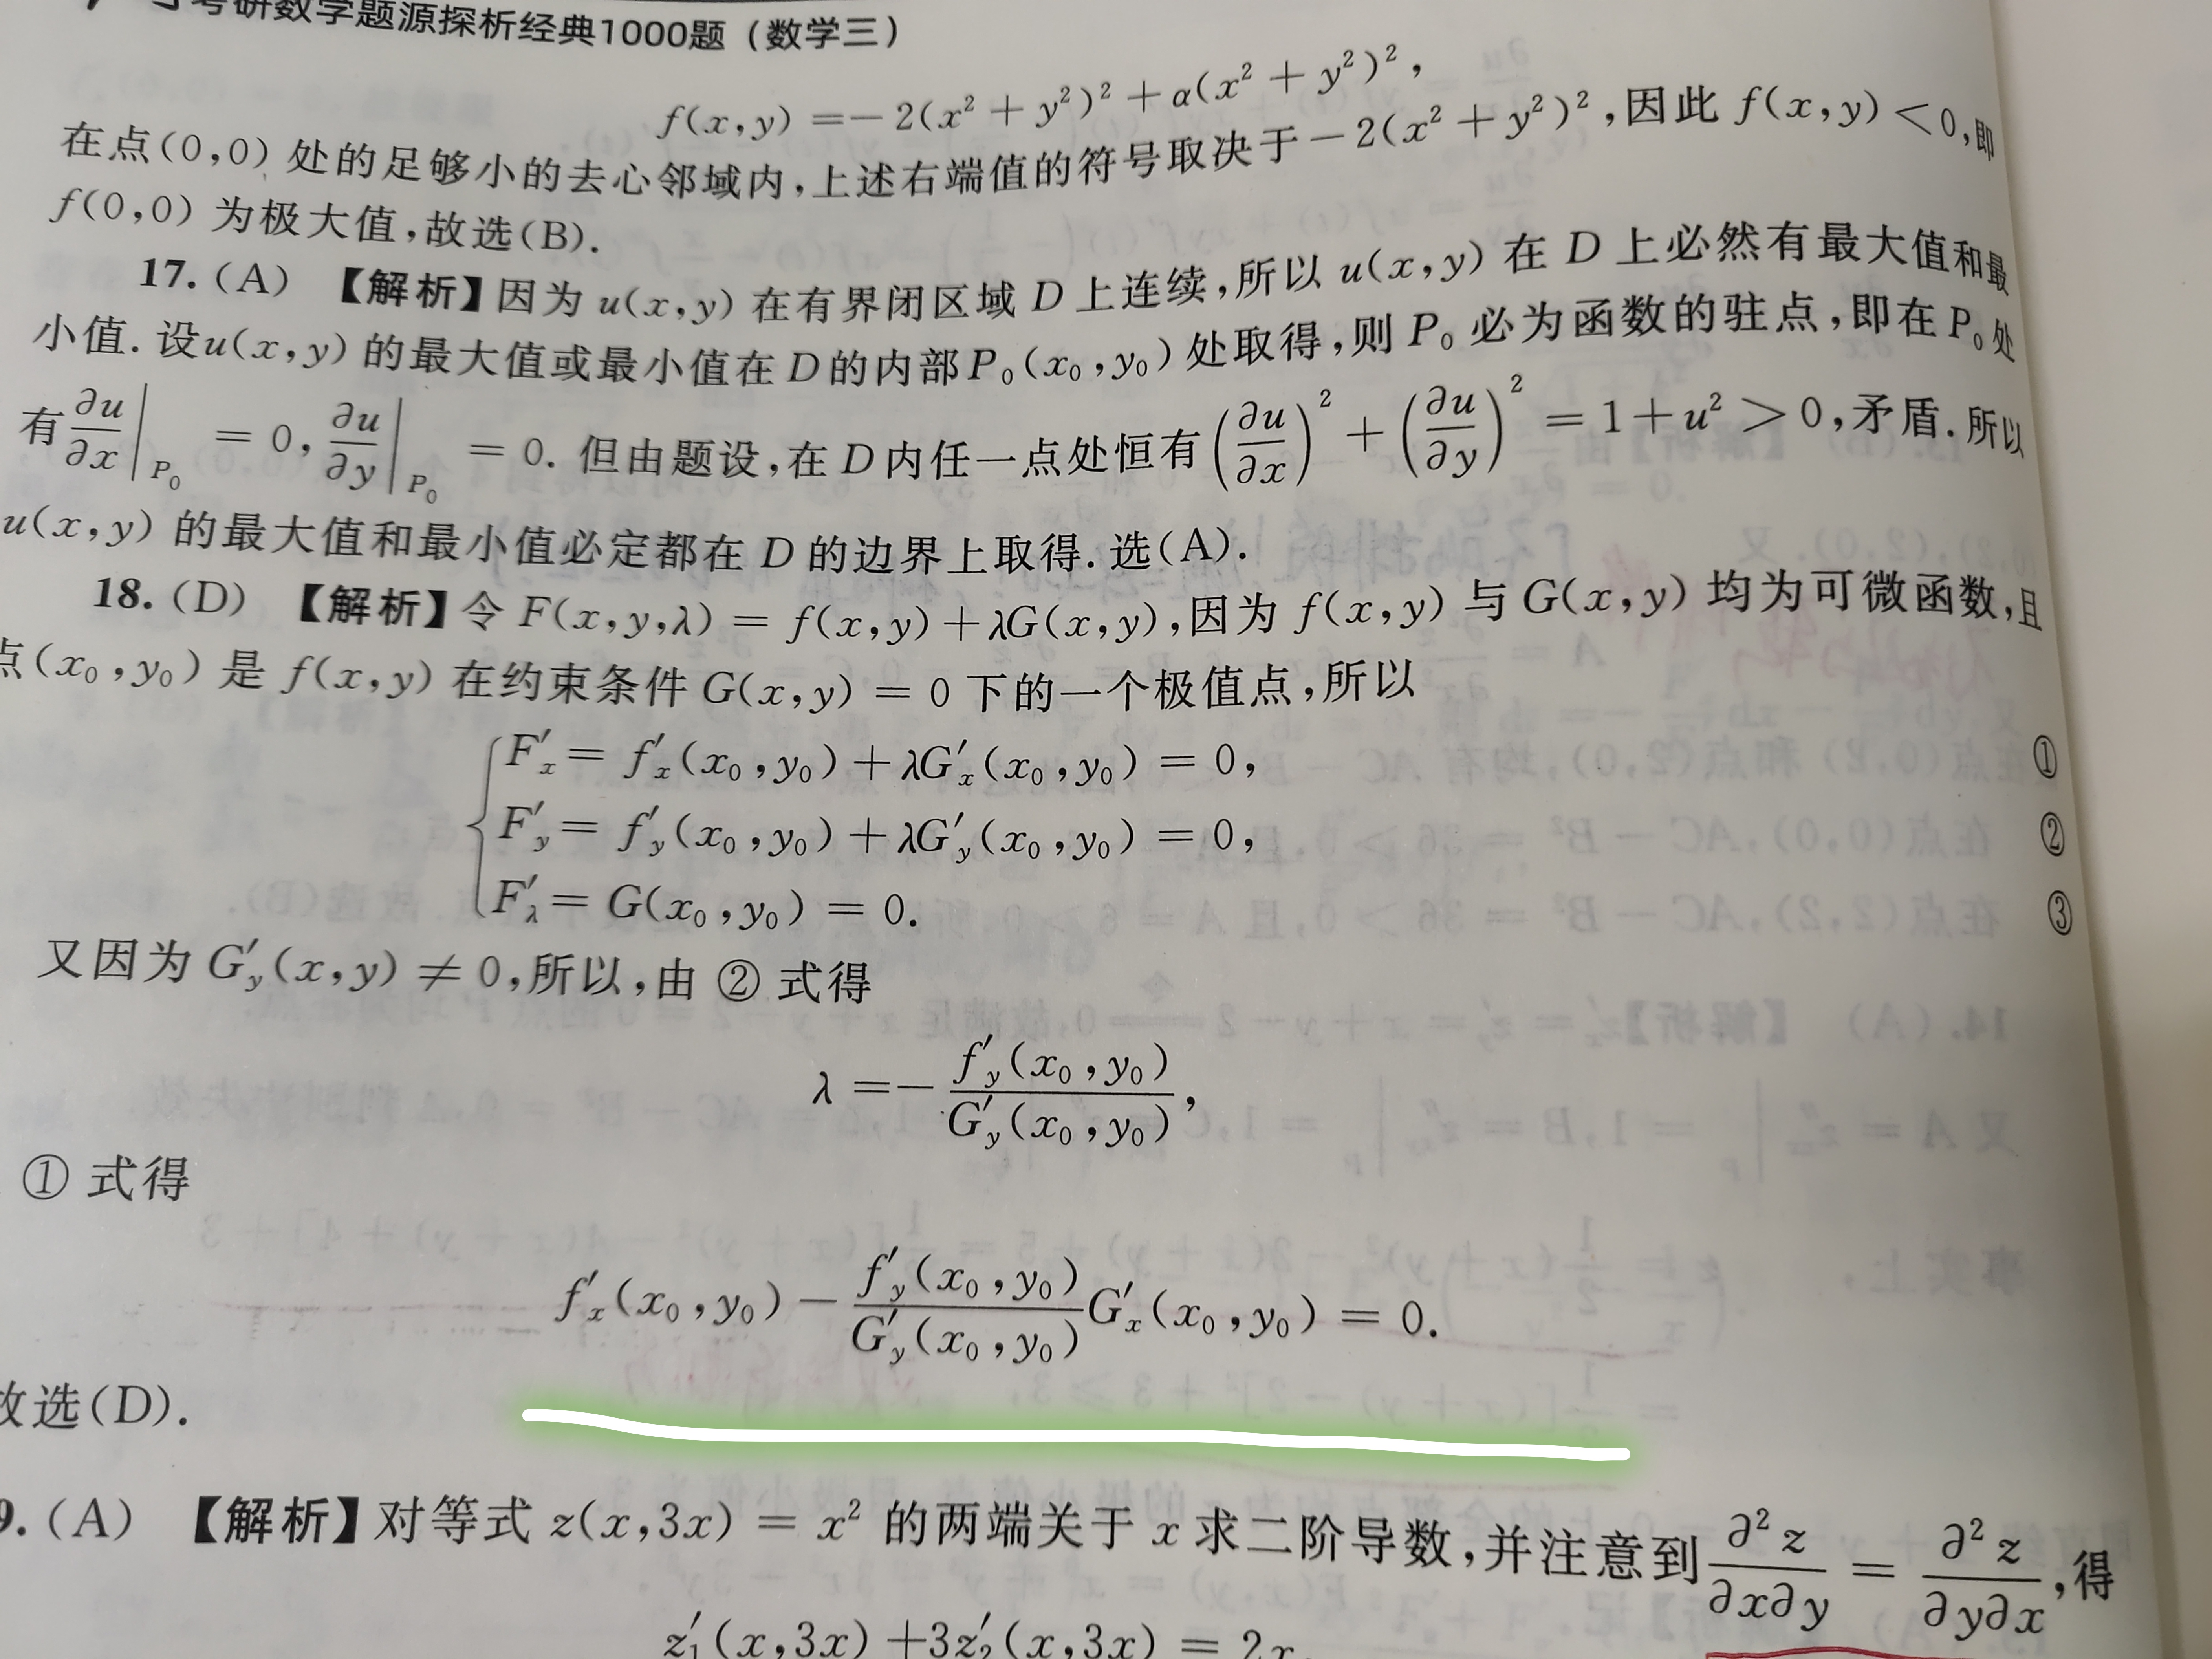 考研数学题源探析经典1000题（数学三）
f(x,y) =- 2(x² + y²)² + α(x² + y²)²,
在点(0,0) 处的足够小的去心邻域内,上述右端值的符号取决于 - 2(x² + y²)²,因此 f(x,y) < 0,即
f(0,0) 为极大值,故选(B).
17. (A) 【解析】因为 u(x,y) 在有界闭区域 D 上连续,所以 u(x,y) 在 D 上必然有最大值和最
小值. 设u(x,y) 的最大值或最小值在D的内部P₀(x₀,y₀) 处取得,则 P₀ 必为函数的驻点,即在 P₀ 处
有 ∂u/∂x|P₀ = 0, ∂u/∂y|P₀ = 0. 但由题设,在 D 内任一点处恒有 (∂u/∂x)² + (∂u/∂y)² = 1 + u² > 0,矛盾. 所以
u(x,y) 的最大值和最小值必定都在 D 的边界上取得. 选(A).
18. (D) 【解析】令 F(x,y,λ) = f(x,y) + λG(x,y),因为 f(x,y) 与 G(x,y) 均为可微函数,且
点(x₀,y₀) 是 f(x,y) 在约束条件 G(x,y) = 0 下的一个极值点,所以
F′x = f′x(x₀,y₀) + λG′x(x₀,y₀) = 0, ①
F′y = f′y(x₀,y₀) + λG′y(x₀,y₀) = 0, ②
F′λ = G(x₀,y₀) = 0. ③
又因为 G′y(x,y) ≠ 0,所以,由 ② 式得
λ =- f′y(x₀,y₀)/G′y(x₀,y₀),
① 式得
f′x(x₀,y₀) - f′y(x₀,y₀)/G′y(x₀,y₀) G′x(x₀,y₀) = 0.
故选(D).
9. (A) 【解析】对等式 z(x,3x) = x² 的两端关于 x 求二阶导数,并注意到 ∂²z/∂x∂y = ∂²z/∂y∂x,得
z′₁(x,3x) +3z′₂(x,3x) = 2x